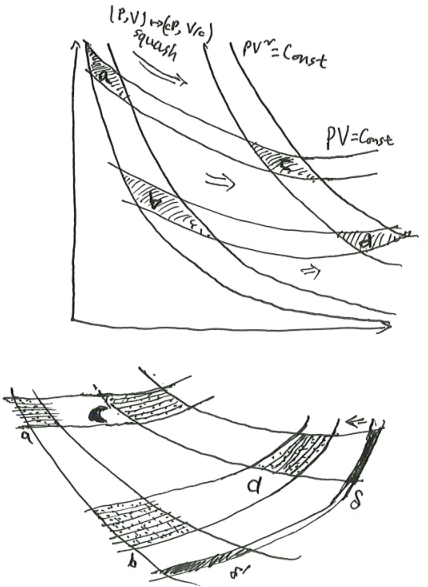 (P,V)↦(cP, V/c)
squash
PVʳ=Const
a
c
PV=Const
b
d
a
c
d
δ
b
δ'